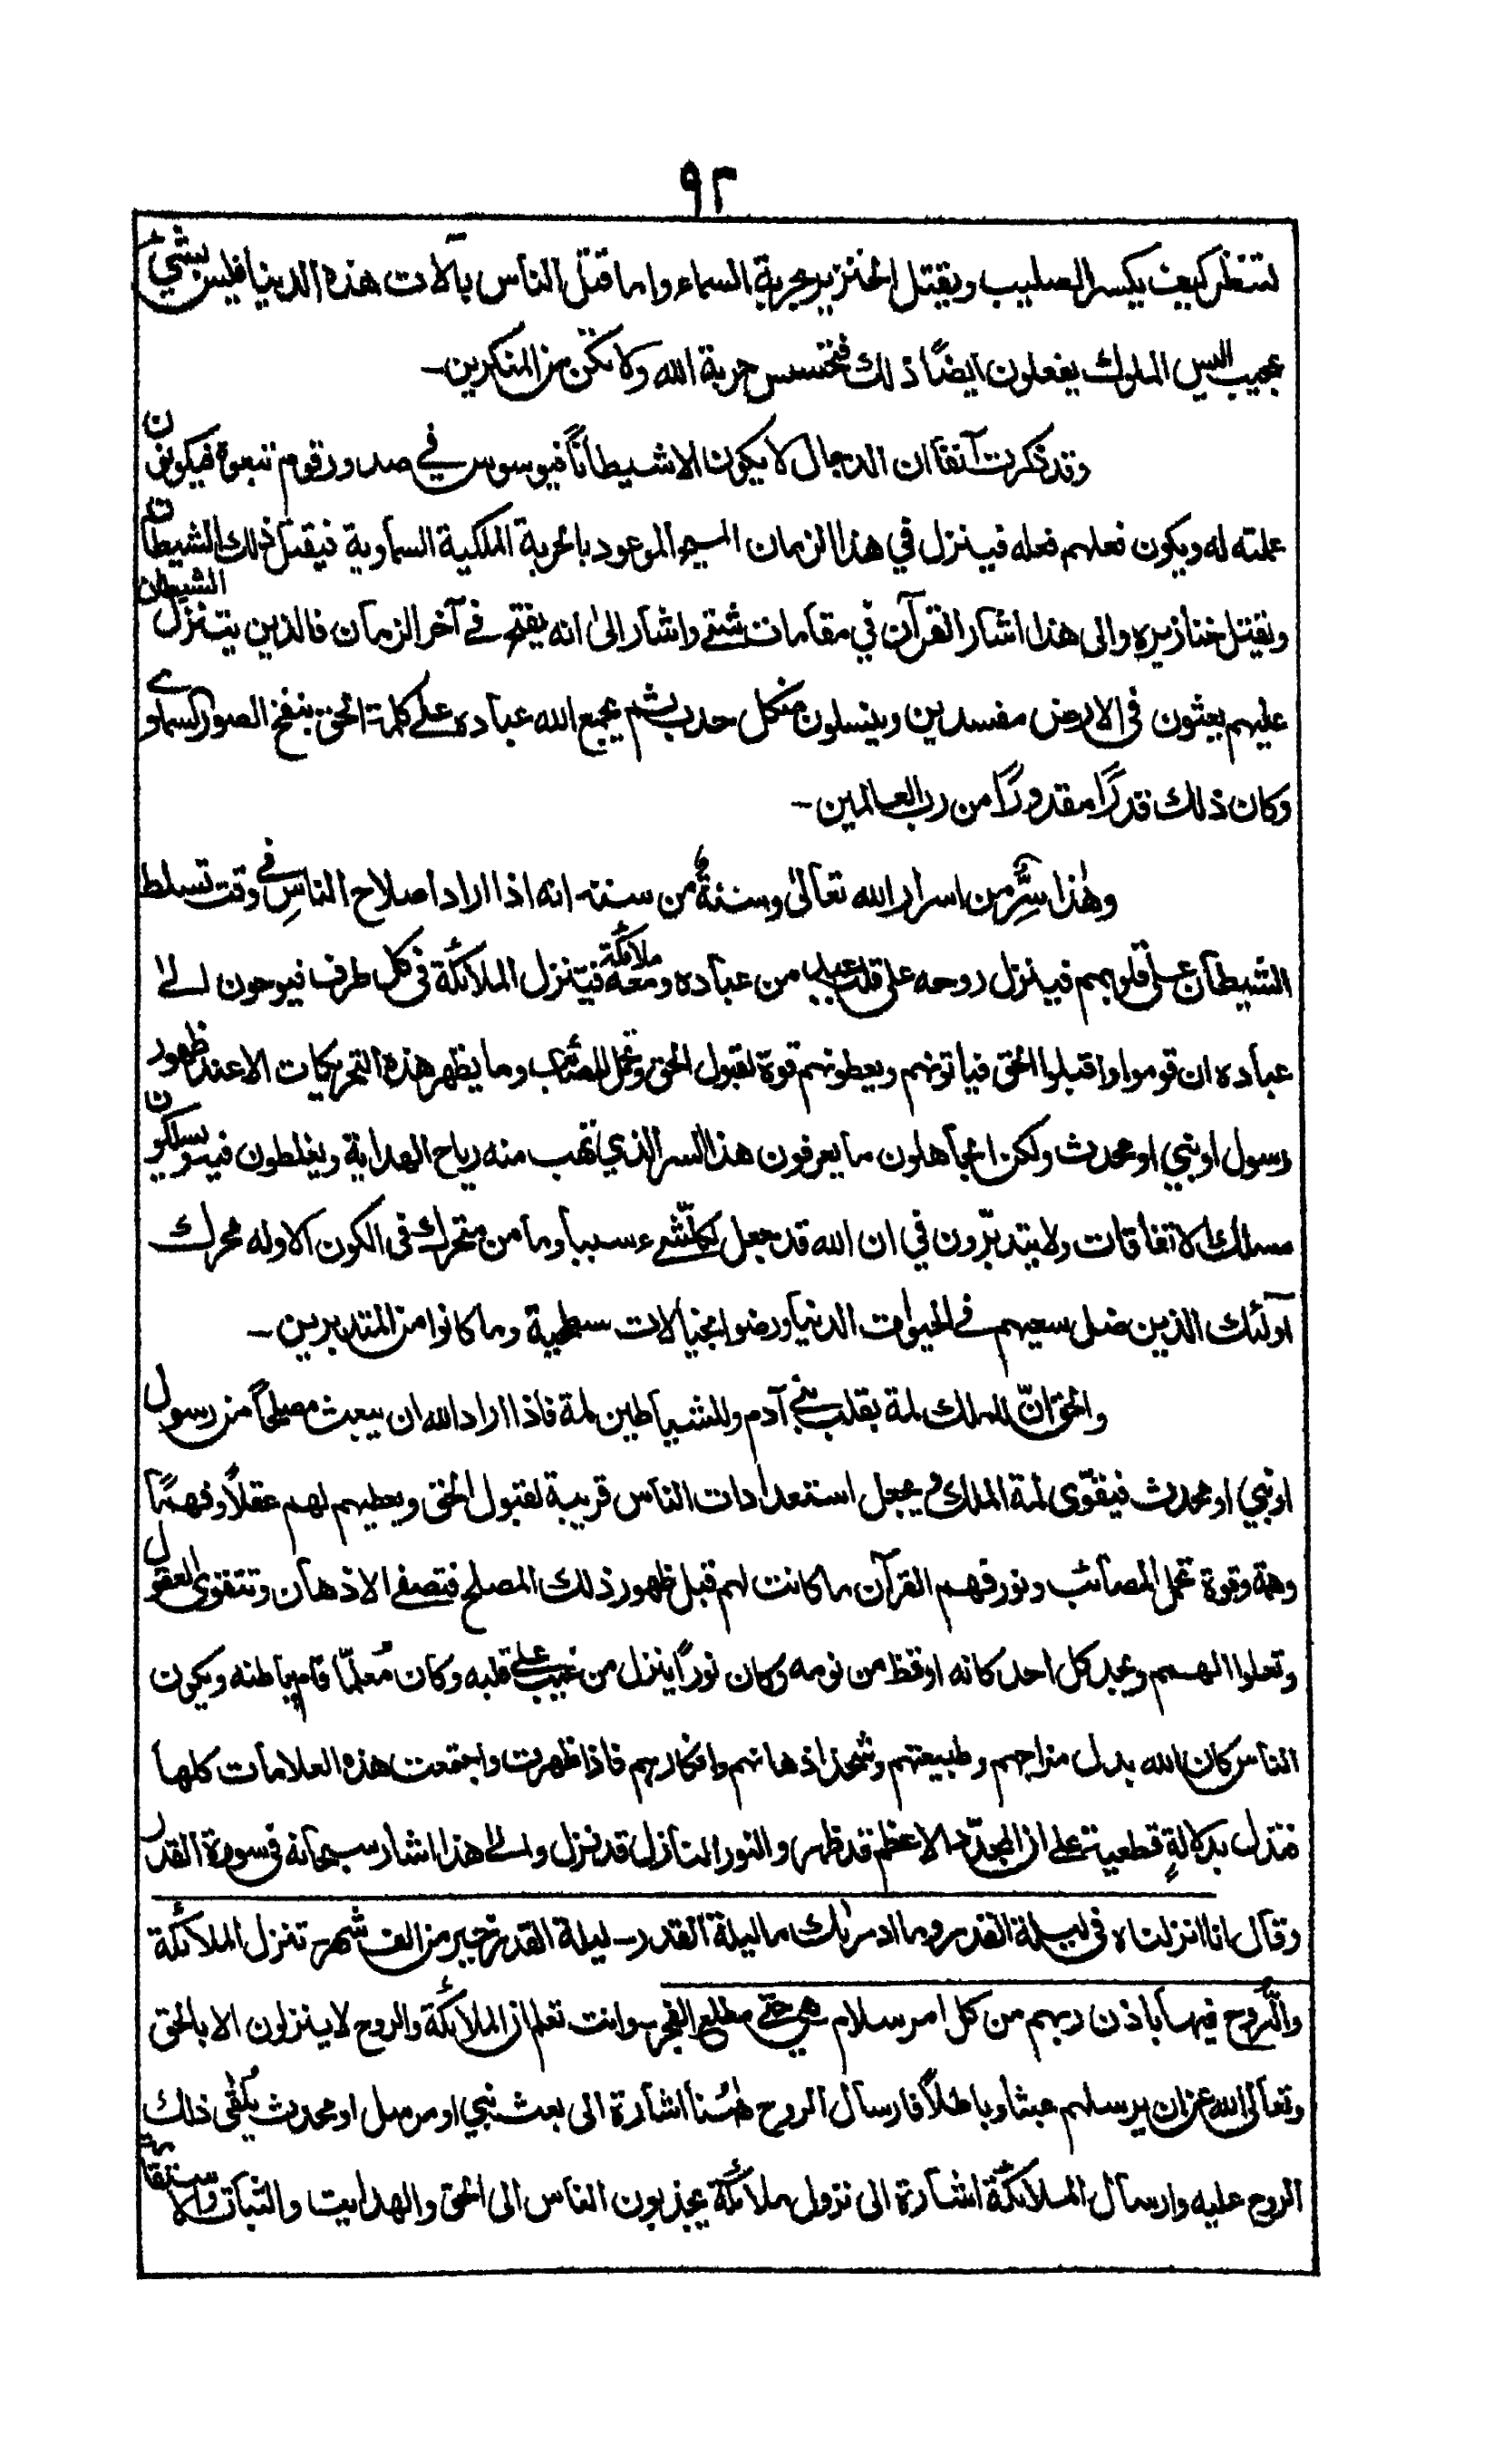 ٩٢
لتنظر كيف يكسر الصليب ويقتل الخنزير بحربة السماء واما قتل الناس بآلات هذه الدنيا فليس بشيءٍ
عجيب اليس الملوك يفعلون ايضًا ذلك فتحسس حربة الله ولا تكن من المنكرين۔
وقد ذكرت آنفا ان الدجال لا يكون الا شيطانًا فيوسوس في صدور قوم تبعوه فيكونون
عملته له ويكون فعلهم فعله فينزل في هذا الزمان المسيح الموعود بالحربة الملكية السماوية فيقتل ذلك الشيطان
ويقتل خنازيره والى هذا اشار القرآن في مقامات شتى واشار الىٰ انه يفتح في آخر الزمان فالذين يتنزل الشيطان
عليهم يعثون فى الارض مفسدين وينسلون من كل حدب ثم يجمع الله عباده على كلمة الحق بنفخ الصور السماوي
وكان ذلك قدرًا مقدورًا من رب العالمين۔
وهٰذا سِرٌّ من اسرار الله تعالىٰ وسنةٌ من سننه انه اذا اراد اصلاح الناسِ في وقت تسلط
الشيطان على قلوبهم فينزل روحه على قلب عبد من عباده ومعه ملائكة فيتنزل الملائكة في كل طرف فيوحون الى
عباده ان قوموا واقبلوا الحق فياتونهم ويعطونهم قوة لقبول الحق وتحمل المصائب وما يظهر هذه التحريكات الا عند ظهور
رسول او نبي او محدث ولكن الجاهلون ما يعرفون هذا السر الذي تهب منه رياح الهداية ويغلطون فيه ويسلكون
مسلك الاتفاقات ولا يتدبّرون في ان الله قد جعل لكل شيء سببا وما من متحرك فى الكون الا وله محرك
اولٓئك الذين ضل سعيهم في الحيوٰة الدنيا ورضوا بخيالات سطحية وما كانوا من المتدبرين۔
والحق انّ للملك لمة بقلب بني آدم وللشياطين لمة فاذا اراد الله ان يبعث مصلحًا من رسول
او نبي او محدث فيقوّى لمة الملك و يجعل استعدادات الناس قريبة لقبول الحق ويعطيهم لهم عقلًا وفهمًا
وهمة وقوة تحمل المصائب ونور فهم القرآن ما كانت لهم قبل ظهور ذلك المصلح فتصفى الاذهان وتتقوى العقول
وتعلوا الهمم ويجد كل احد كانه اوقظ من نومه وكان نورًا ينزل من غيب على قلبه وكان مُعلمًا قام بباطنه ويكون
الناس كان الله بدل مزاجهم وطبيعتهم وشحذ اذهانهم وافكارهم فاذا ظهرت واجتمعت هذه العلامات كلها
فتدل بدلالةٍ قطعية على ان المجدّد الاعظم قد ظهر والنور النازل قد نزل والى هذا اشار سبحانه فى سورة القدر
وقال انا انزلناه فى ليلة القدر وما ادرٰىك ما ليلة القدر۔ ليلة القدر خير من الف شهر۔ تنزل الملائكة
والرُّوح فيها باذن ربهم من كل امر سلام هي حتى مطلع الفجر۔ وانت تعلم ان الملائكة والروح لا ينزلون الا بالحق
وتعالى الله عن ان يرسلهم عبثا وباطلًا فارسال الروح هٰهُنا اشارة الى بعث نبي او مرسل او محدث يُلقٰى ذلك
الروح عليه وارسال الملائكة اشارة الى نزول ملائكة يجذبون الناس الى الحق والهداية والثبات والاستقامة